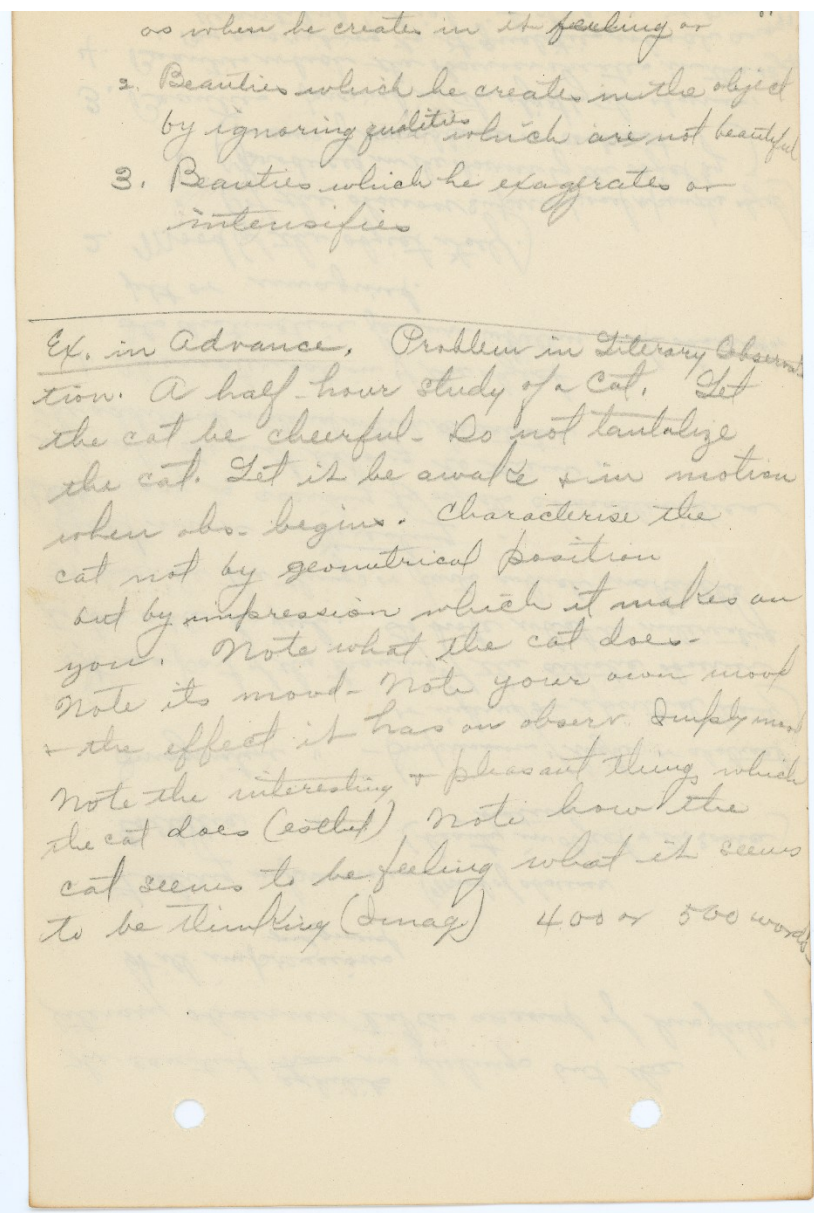 as when he creates in it feeling or
2. Beauties which he creates in the object
by ignoring qualities which are not beautiful
3. Beauties which he exagerates or
intensifies
Ex. in Advance. Problem in Literary Observa
tion. A half-hour study of a Cat. Let
the cat be cheerful - Do not tantalize
the cat. Let it be awake & in motion
when obs. begins. Characterise the
cat not by geometrical position
but by impression which it makes on
you. Note what the cat does -
Note its mood - Note your own mood
& the effect it has on observ.
Note the interesting & pleasant things which
the cat does (esthet) Note how the
cat seems to be feeling what it seems
to be thinking (Imag.) 400 or 500 words